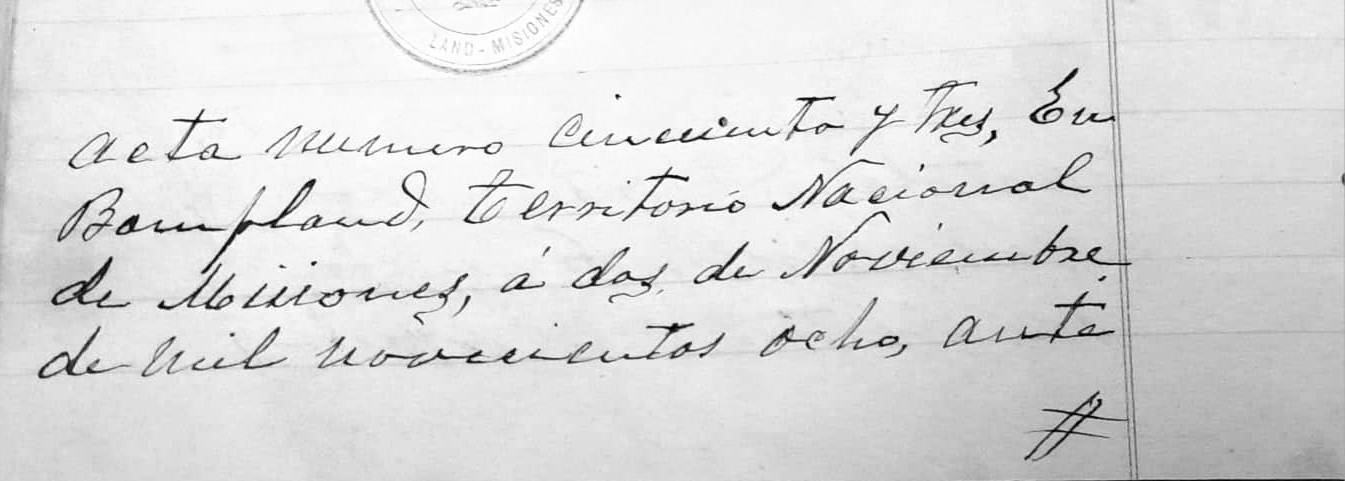 LAND - MISIONES
Acta numero cincuenta y tres, En
Bompland, territorio Nacional
de Misiones, á dos de Noviembre
de mil novecientos ocho, ante